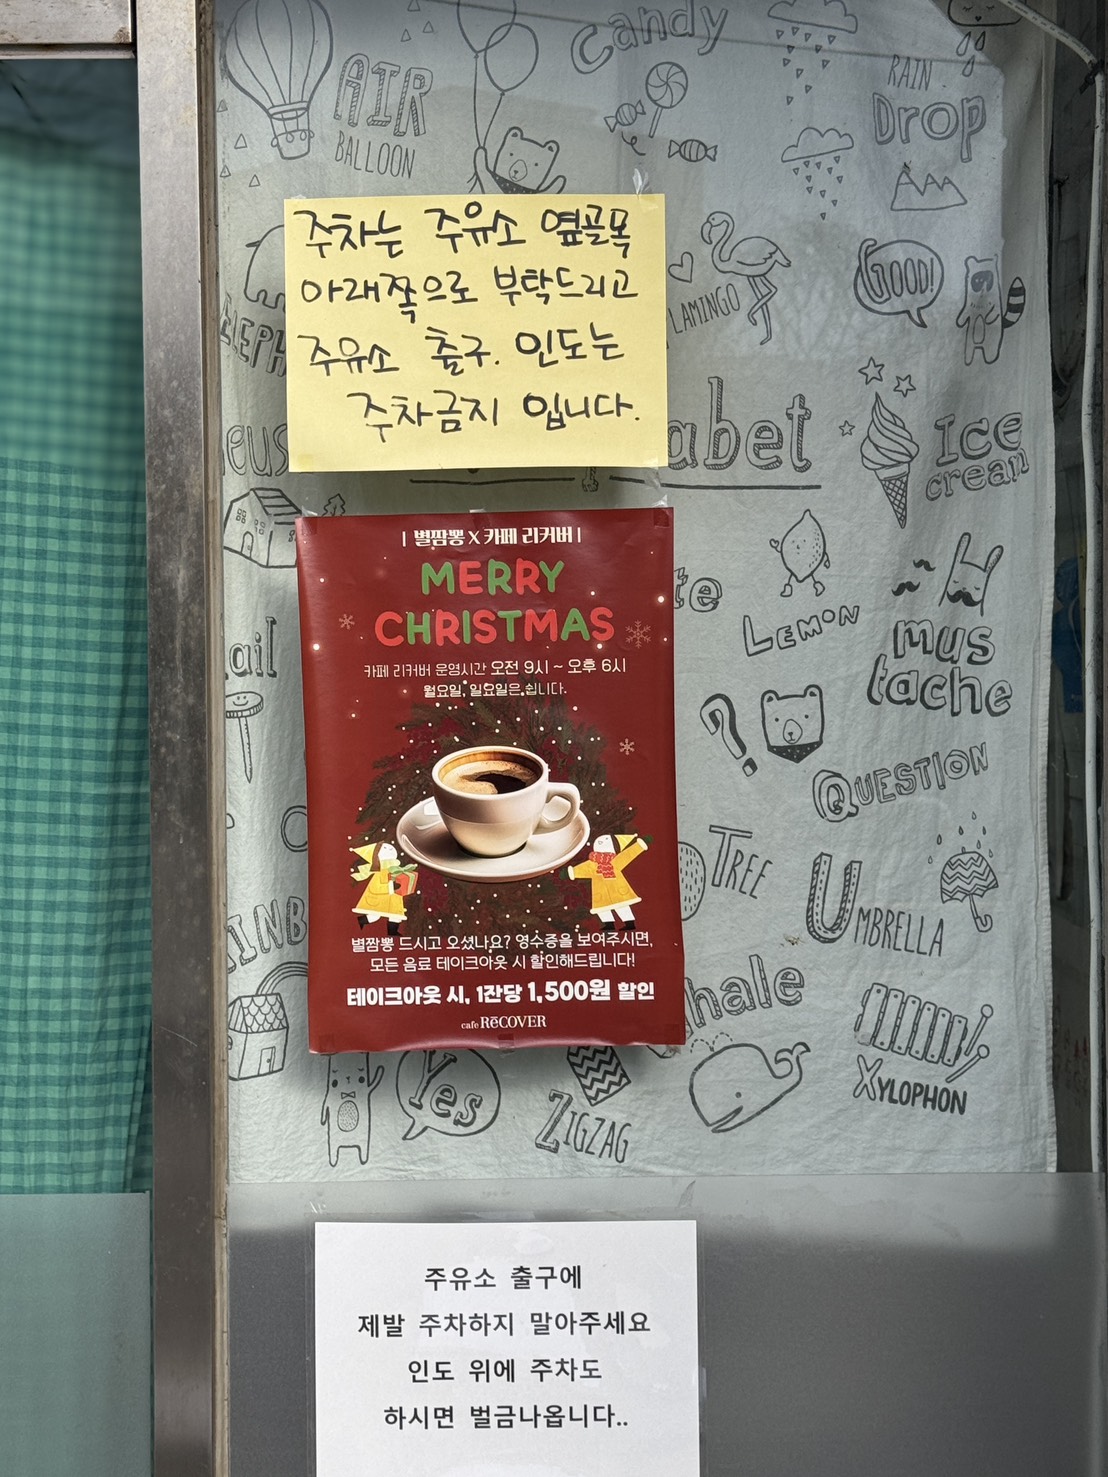 candy
AIR
BALLOON
RAIN
Drop
주차는 주유소 옆골목
아래쪽으로 부탁드리고
주유소 출구. 인도는
주차금지 입니다.
GOOD!
LAMINGO
ELEPH
abet
Ice
cream
| 별짬뽕 X 카페 리커버 |
MERRY
CHRISTMAS
카페 리커버 운영시간 오전 9시 ~ 오후 6시
월요일, 일요일은 쉽니다.
LEMON
mus
tache
ail
?
QUESTION
TREE
UMBRELLA
별짬뽕 드시고 오셨나요? 영수증을 보여주시면,
모든 음료 테이크아웃 시 할인해드립니다!
테이크아웃 시, 1잔당 1,500원 할인
cafe RēCOVER
INB
hale
XYLOPHON
Yes
ZIGZAG
주유소 출구에
제발 주차하지 말아주세요
인도 위에 주차도
하시면 벌금나옵니다..